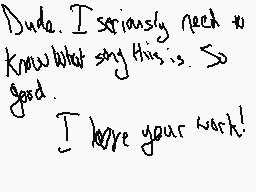 Dude. I seriously need to
know what song this is. So
good.
I love your work!